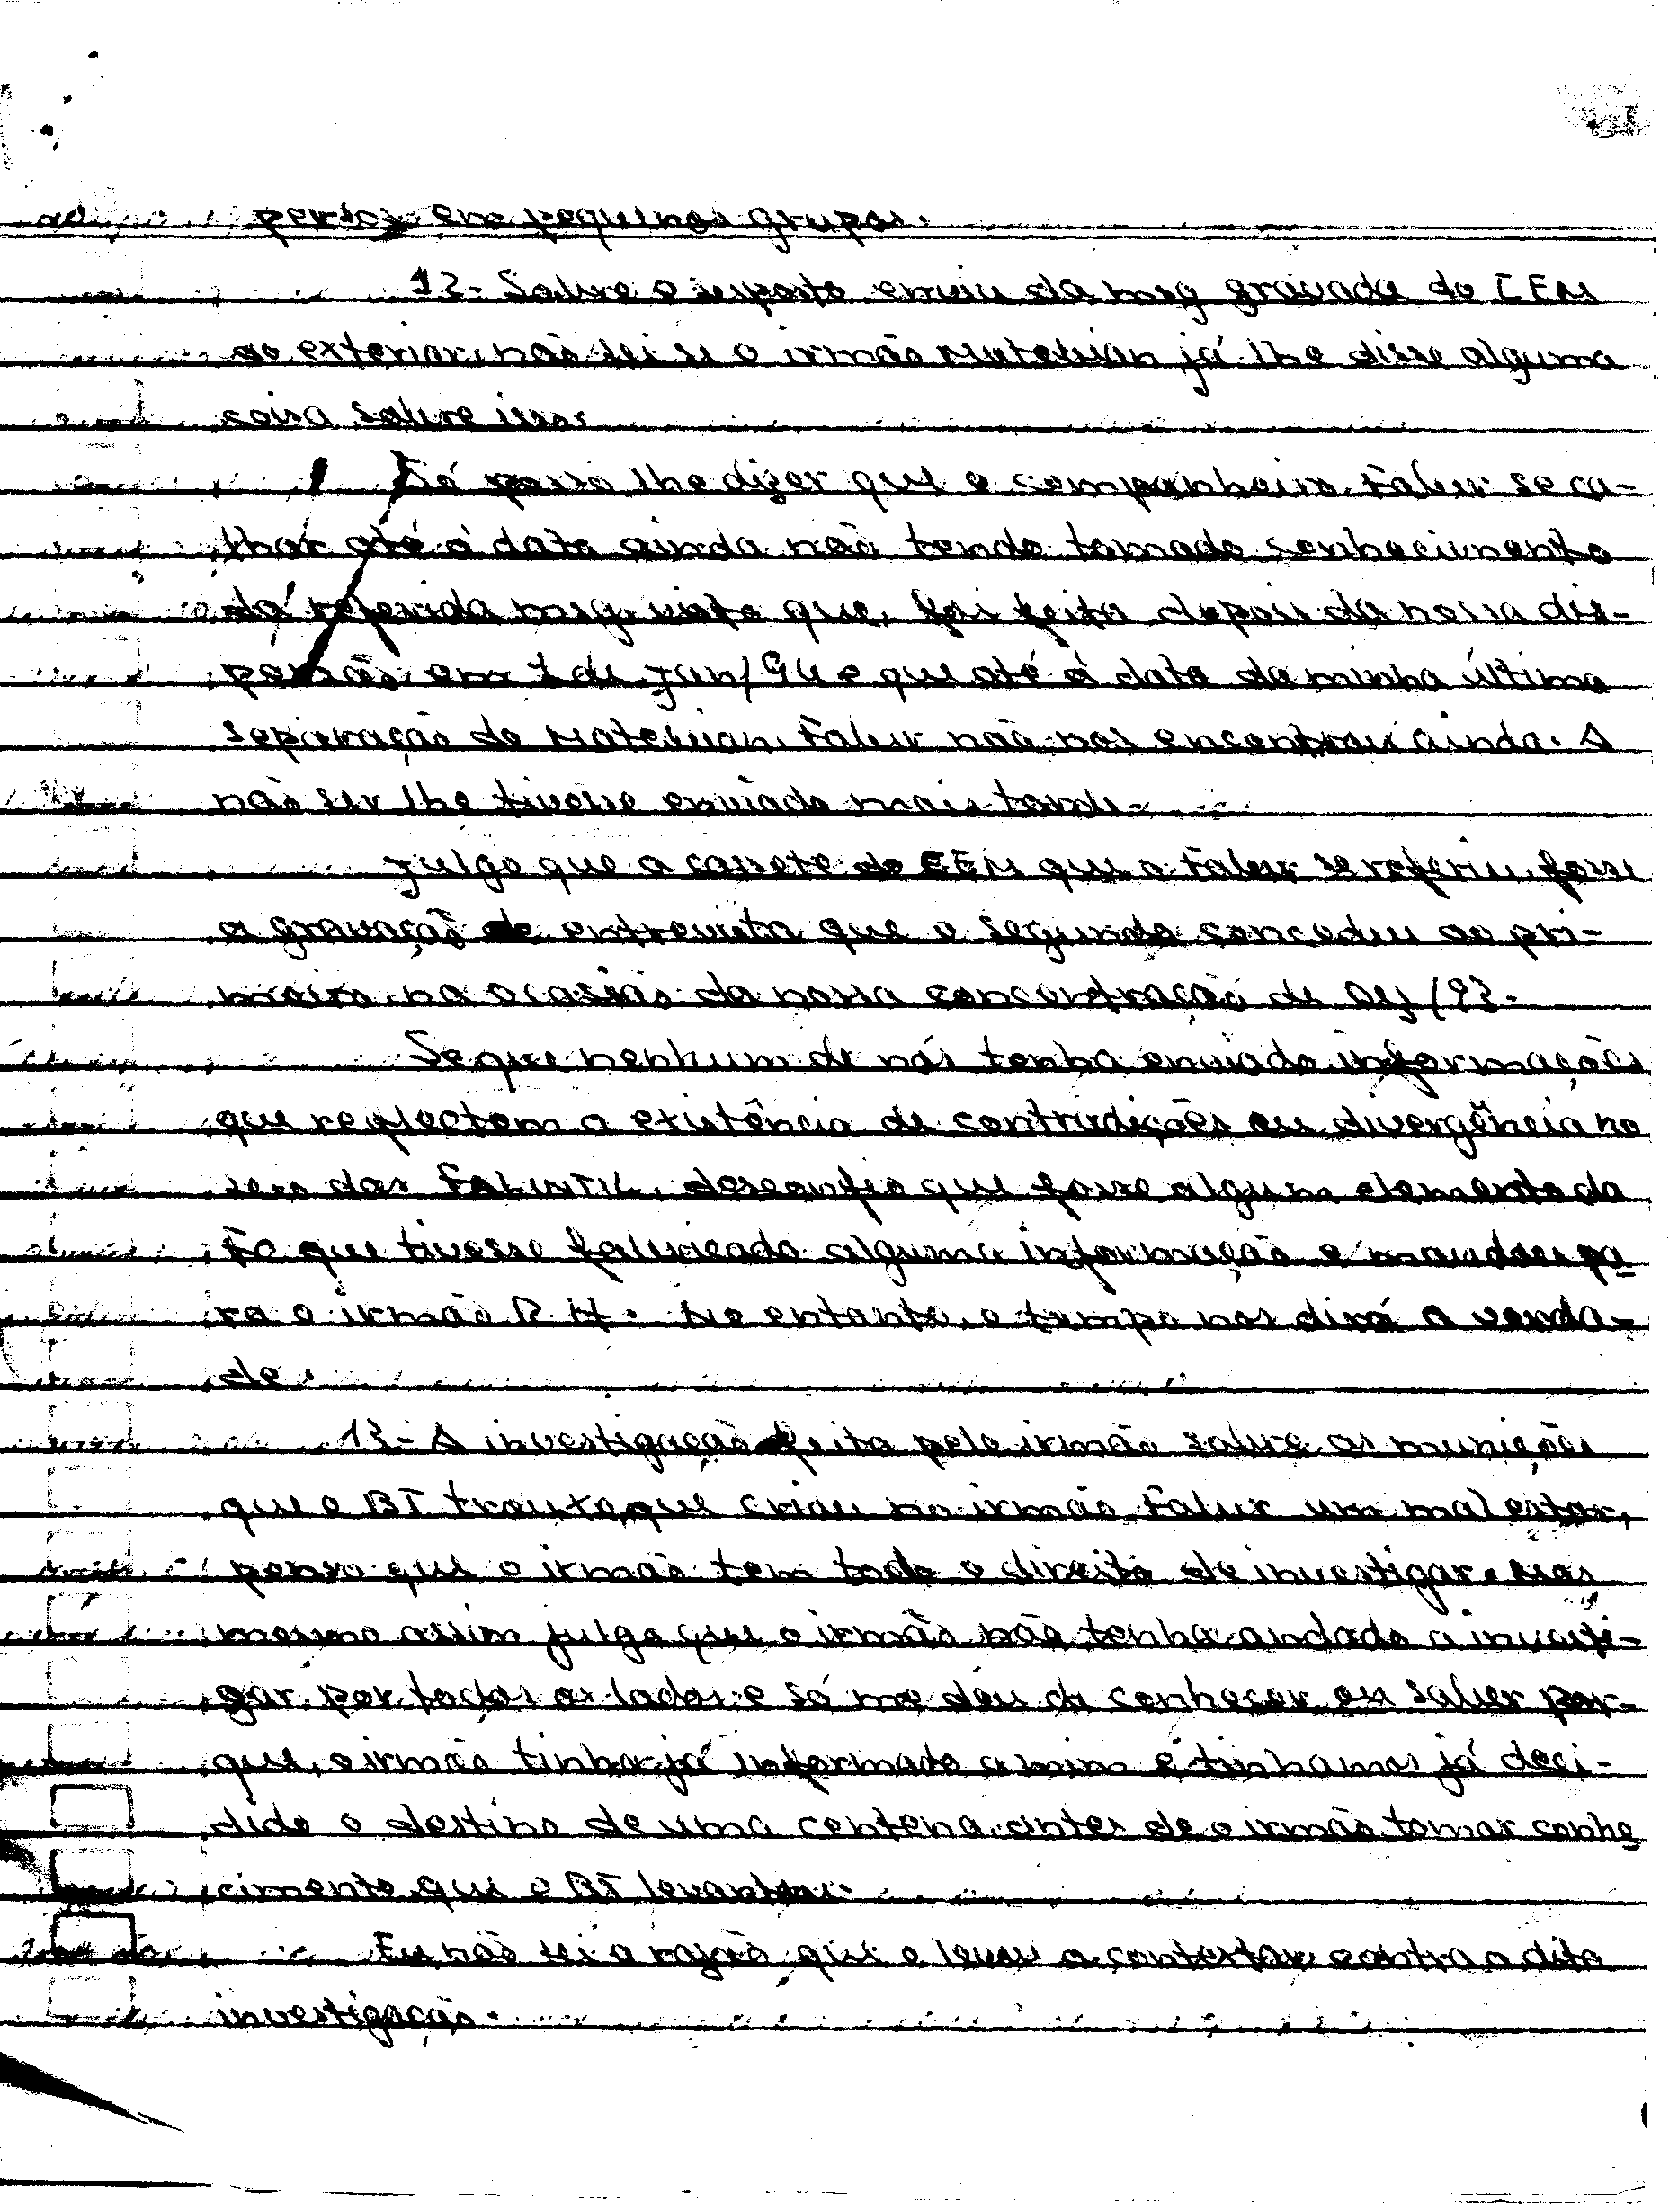 persos em pequenos grupos.
12- Sobre o suposto envio da msg gravada do CEM
ao exterior, não sei se o irmão Matebian já lhe disse alguma
coisa sobre isso.
Só posso lhe dizer que o companheiro Falur se ca-
lhar até à data ainda não tendo tomado conhecimento
da referida msg. visto que, foi feita depois da nossa dis-
persão em 1 de Jun/94 e que até à data da minha última
separação de Matebian, Falur não nos encontrou ainda. A
não ser lhe tivesse enviado mais tarde.
Julgo que a cassete do CEM que o Falur se referiu, fosse
a gravação de entrevista que o segundo concedeu ao pri-
meiro na ocasião da nossa concentração de /93.
Se que nenhum de nós tenha enviado informações
que reflectem a existência de contradições ou divergência no
seio das FALINTIL, desconfio que fosse algum elemento da
Fo que tivesse fabricado alguma informação e mandou pa
ra o irmão R H. No entanto, o tempo nos dirá a verda-
de.
13- A investigação feita pelo irmão sobre as munições
que o BT trouxe, que criou no irmão Falur um mal estar,
penso que o irmão tem todo o direito de investigar. Mas
mesmo assim julgo que o irmão não tenha andado a investi-
gar por todos os lados e só me deu a conhecer ou saber por-
que, o irmão tinha já informado a mim e tinhamos já deci-
dido o destino de uma centena antes de o irmão tomar conhe
cimento que o BT levantou.
Eu não sei a razão que o levou a contestar contra a dita
investigação.